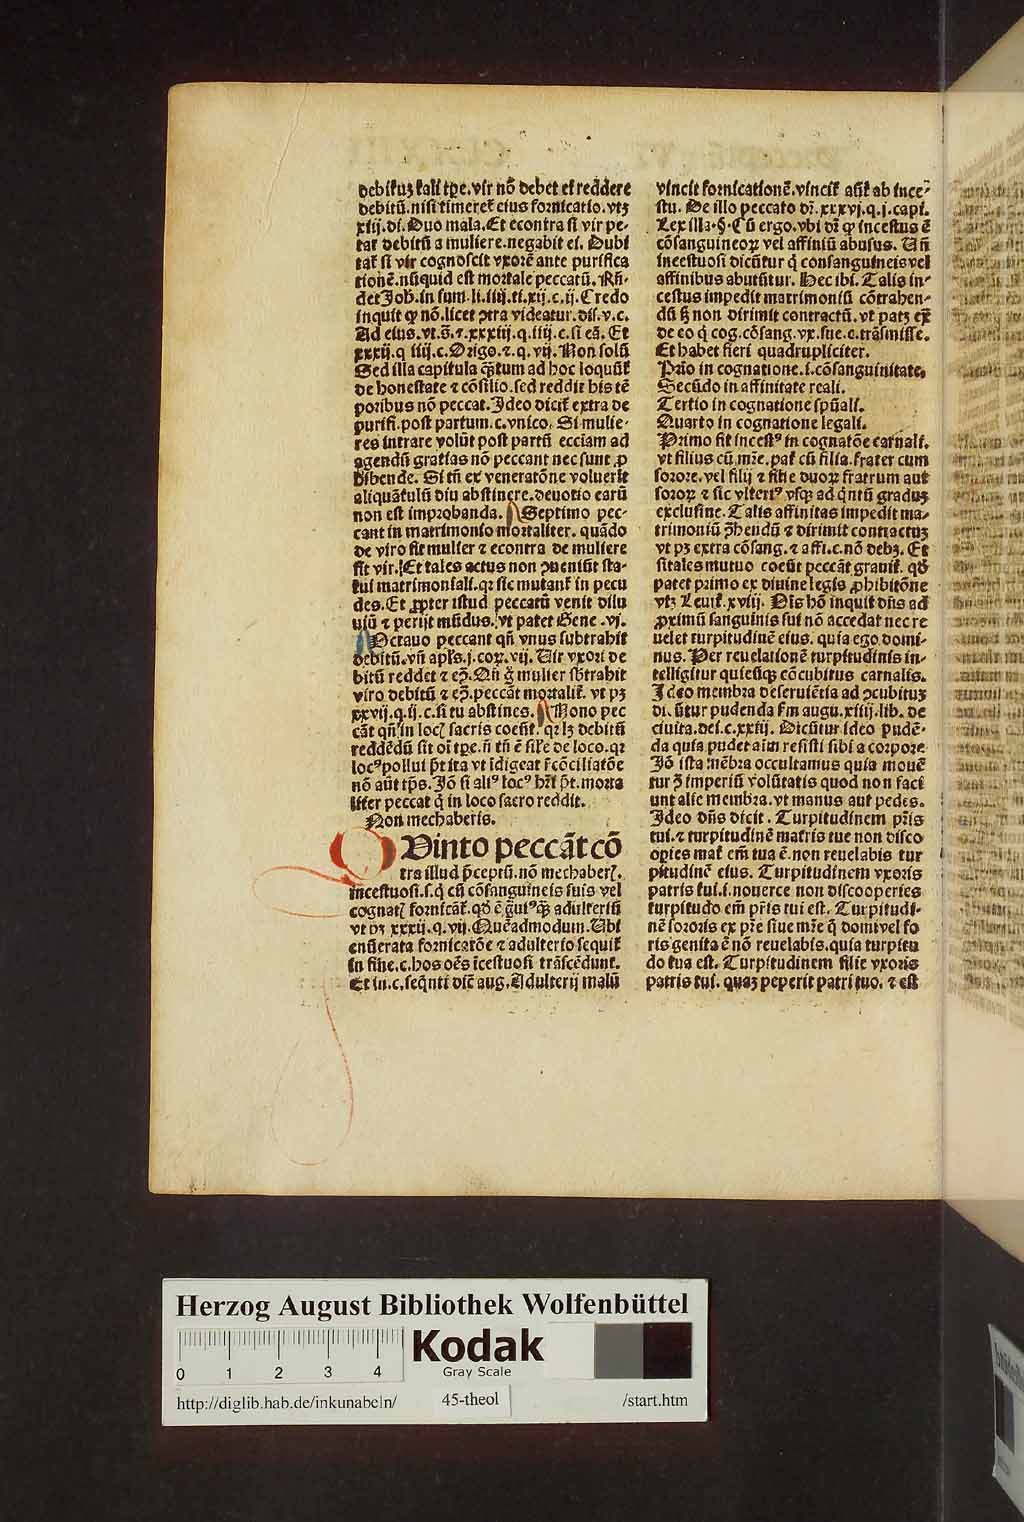 debituʒ tali tꝑe. vir nō debet ei reddere
debitū. nisi timeret eius fornicatio. vtʒ
xiij. di. Duo mala. Et econtra si vir pe-
tat debitū a muliere. negabit ei. Dubi
tat᷒ si vir cognoscit vxorē ante purifica
tionē. nūquid est mortale peccatū. Rn̄-
det Joh̄. in sum̄. li. iiij. ti. xij. c. ij. Credo
inquit ꝙ nō. licet ↄtra videatur. dis. v. c.
Ad eius. vt. s̄. ⁊. xxxiij. q. iiij. c. si cā. Et
xxxij. q iiij. c. Origo. ⁊. q. vij. Non solū
Sed illa capitula qͣ̄tum ad hoc loquūt᷒
de honestate ⁊ cōsilio. sed reddit his tē
poribus nō peccat. Jdeo dicit᷒ extra de
purifi. post partum. c. vnico. Si mulie-
res intrare volūt post partū eccīam ad
agendū gratias nō peccant nec sunt ꝓ
hibende. Si tn̄ ex veneratōne voluerīt
aliquātulū diu abstinere. deuotio earū
non est improbanda. Septimo pec-
cant in matrimonio mortaliter. quādo
de viro fit mulier ⁊ econtra de muliere
fit vir. Et tales actus non ↄueniūt sta-
tui matrimoniali. qꝛ sic mutant᷒ in pecu
des. Et ꝓpter istud peccatū venit dilu
uiū ⁊ perijt mūdus. vt patet Gene. vj.
Octauo peccant qn̄ vnus subtrahit
debitū. vn̄ apl's. j. coꝝ. vij. Uir vxori de
bitū reddet ⁊ eͦↄ̄. Qn̄ gͦ mulier sb̄trahit
viro debitū ⁊ eͦↄ̄. peccāt mortalit᷒. vt pʒ
xxvij. q. ij. c. si tu abstines. Nono pec
cāt qn̄ in locꝭ sacris coeūt. qꝛ lʒ debitū
reddēdū sit oī tꝑe. n̄ tn̄ ē sil'r de loco. qꝛ
locꝰ pollui pͦt ita vt īdigeat rͨōciliatōe
nō aūt tp̄s. Jō si aliꝰ locꝰ hr̄i pͦt. morta
liter peccat q̄ in loco sacro reddit.
Non mechaberis.
QUinto peccāt cō
tra illud p̄ceptū. nō mechaberꝭ.
incestuosi. s. q̄ cū cōsanguineis suis vel
cognatꝭ fornicāt᷒. qd̄ ē gͣuiꝰ qͣꝫ adulteriū
vt pʒ xxxij. q. vij. Quēadmodum. Ubi
enūerata fornicatōe ⁊ adulterio sequit᷒
in fine. c. hos oēs īcestuosi trāscēdunt.
Et in. c. seqn̄ti dic̄ aug. Adulterij malū
vincit fornicationē. vincit᷒ aūt ab ince-
stu. De illo peccato dr̄. xxxvj. q. j. capi.
Lex illa. §. Cū ergo. vbi dr̄ ꝙ incestus ē
cōsanguineoꝝ vel affiniū abusus. Un̄
incestuosi dicūtur q̄ consanguineis vel
affinibus abutūtur. Hec ibi. Talis in-
cestus impedit matrimoniū cōtrahen-
dū sꝫ non dirimit contractū. vt patʒ ex̄
de eo q̄ cog. cōsang. vx. sue. c. trāsmisse.
Et habet fieri quadrupliciter.
Prīo in cognatione. i. cōsanguinitate.
Secūdo in affinitate reali.
Tertio in cognatione spūali.
Quarto in cognatione legali.
Primo fit incestꝰ in cognatōe carnali.
vt filius cū mr̄e. pat᷒ cū filia. frater cum
sorore. vel filij ⁊ filie duoꝝ fratrum aut
soroꝝ ⁊ sic vlteriꝰ vsqꝫ ad qͥntū graduʒ
exclusiue. Talis affinitas impedit ma-
trimoniū ↄ̄hendū ⁊ dirimit contractuʒ
vt pʒ extra cōsang. ⁊ affi. c. nō debʒ. Et
si tales mutuo coeūt peccāt grauit᷒. qd̄
patet primo ex diuine legis ꝓhibitōne
vtʒ Leuit᷒. xviij. Oīs hō inquit dn̄s ad
ꝓximū sanguinis sui nō accedat nec re
uelet turpitudinē eius. quia ego domi-
nus. Per reuelationē turpitudinis in-
telligitur quicūqꝫ cōcubitus carnalis.
Jdeo membra deseruiētia ad ↄcubituʒ
dicūtur pudenda s̄m augu. xiiij. lib. de
ciuita. dei. c. xxiij. Dicūtur ideo pudē-
da quia pudet aīm resisti sibi a corpore
Jō ista mēbra occultamus quia mouē
tur ↄ̄ imperiū volūtatis quod non faci
unt alie membra. vt manus aut pedes.
Jdeo dn̄s dicit. Turpitudinem pr̄is
tui. ⁊ turpitudinē matris tue non disco
opies mat᷒ em̄ tua ē. non reuelabis tur
pitudinē eius. Turpitudinem vxoris
patris tui. i. nouerce non discooperies
turpitudo em̄ pr̄is tui est. Turpitudi-
nē sororis ex pr̄e siue mr̄e q̄ domi vel fo
ris genita ē nō reuelabis. quia turpitu
do tua est. Turpitudinem filie vxoris
patris tui. quaʒ peperit patri tuo. ⁊ est
Herzog August Bibliothek Wolfenbüttel
0 1 2 3 4
Kodak
Gray Scale
http://diglib.hab.de/inkunabeln/ 45-theol /start.htm